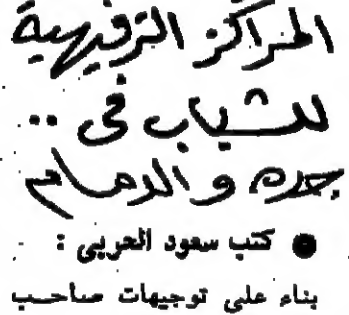 المراكز الترفيهية
للشباب فى ..
جده و الدمام
● كتب سعود الحربى :
بناء على توجيهات صاحب